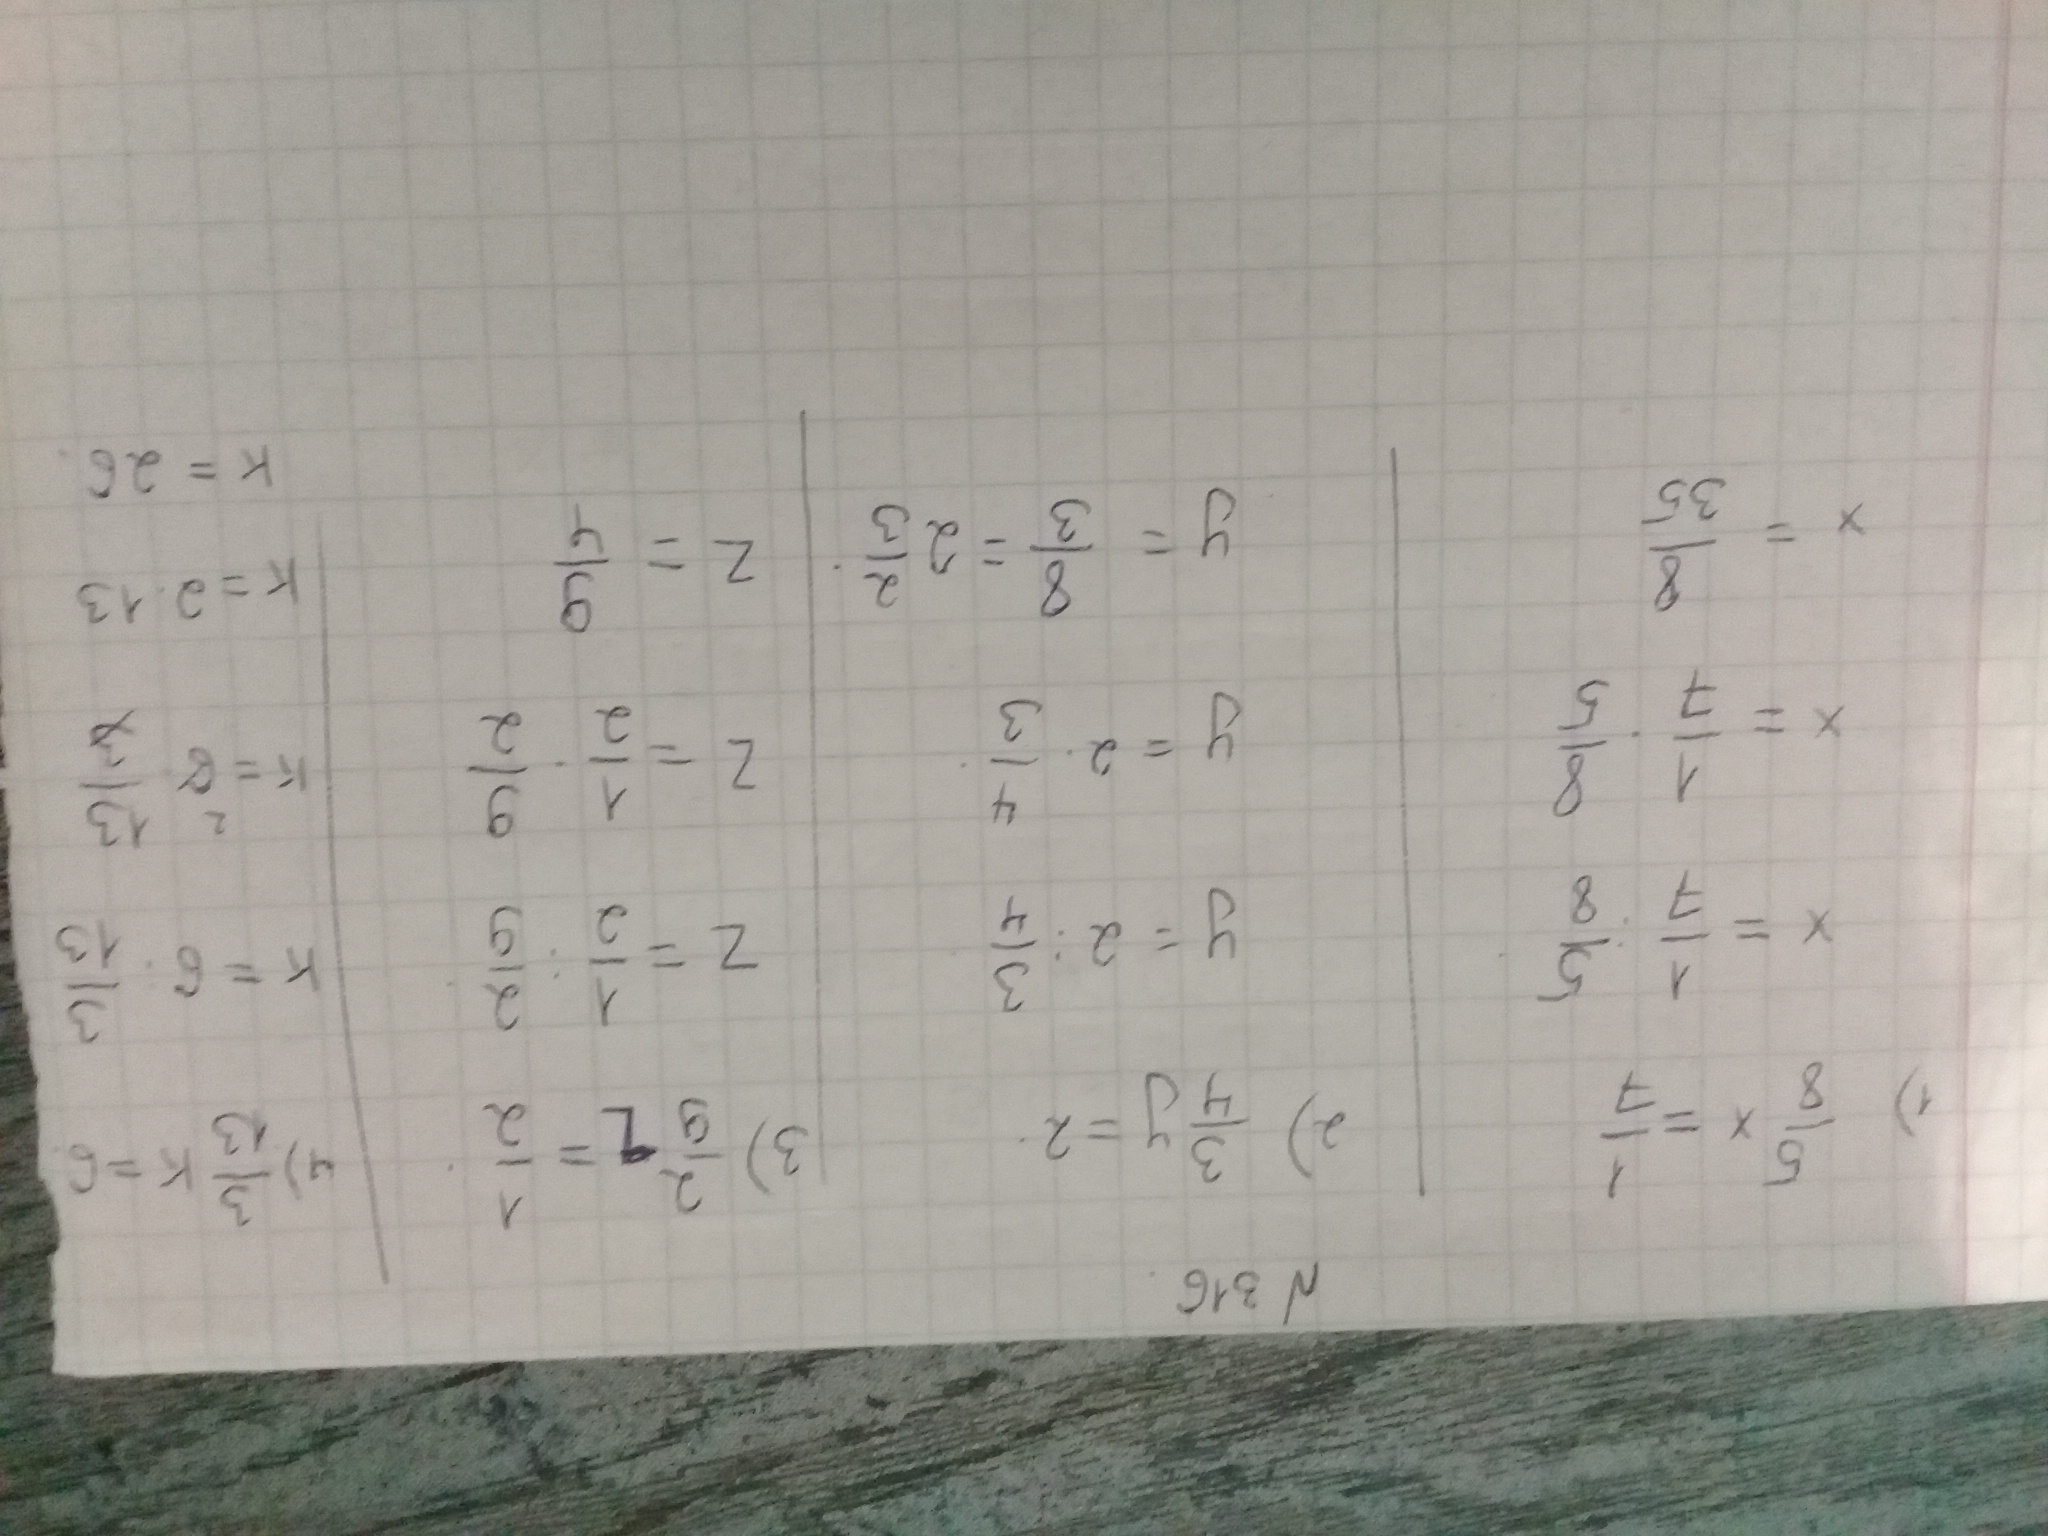 N 316.
1) 5/8 x = 1/7
x = 1/7 : 5/8
x = 1/7 · 8/5
x = 8/35
2) 3/4 y = 2.
y = 2 : 3/4
y = 2 · 4/3
y = 8/3 = 2 2/3.
3) 2/9 z = 1/2.
z = 1/2 : 2/9
z = 1/2 · 9/2
z = 9/4
4) 3/13 k = 6.
k = 6 : 3/13
k = 6 2 · 13/3
k = 2 · 13
k = 26.